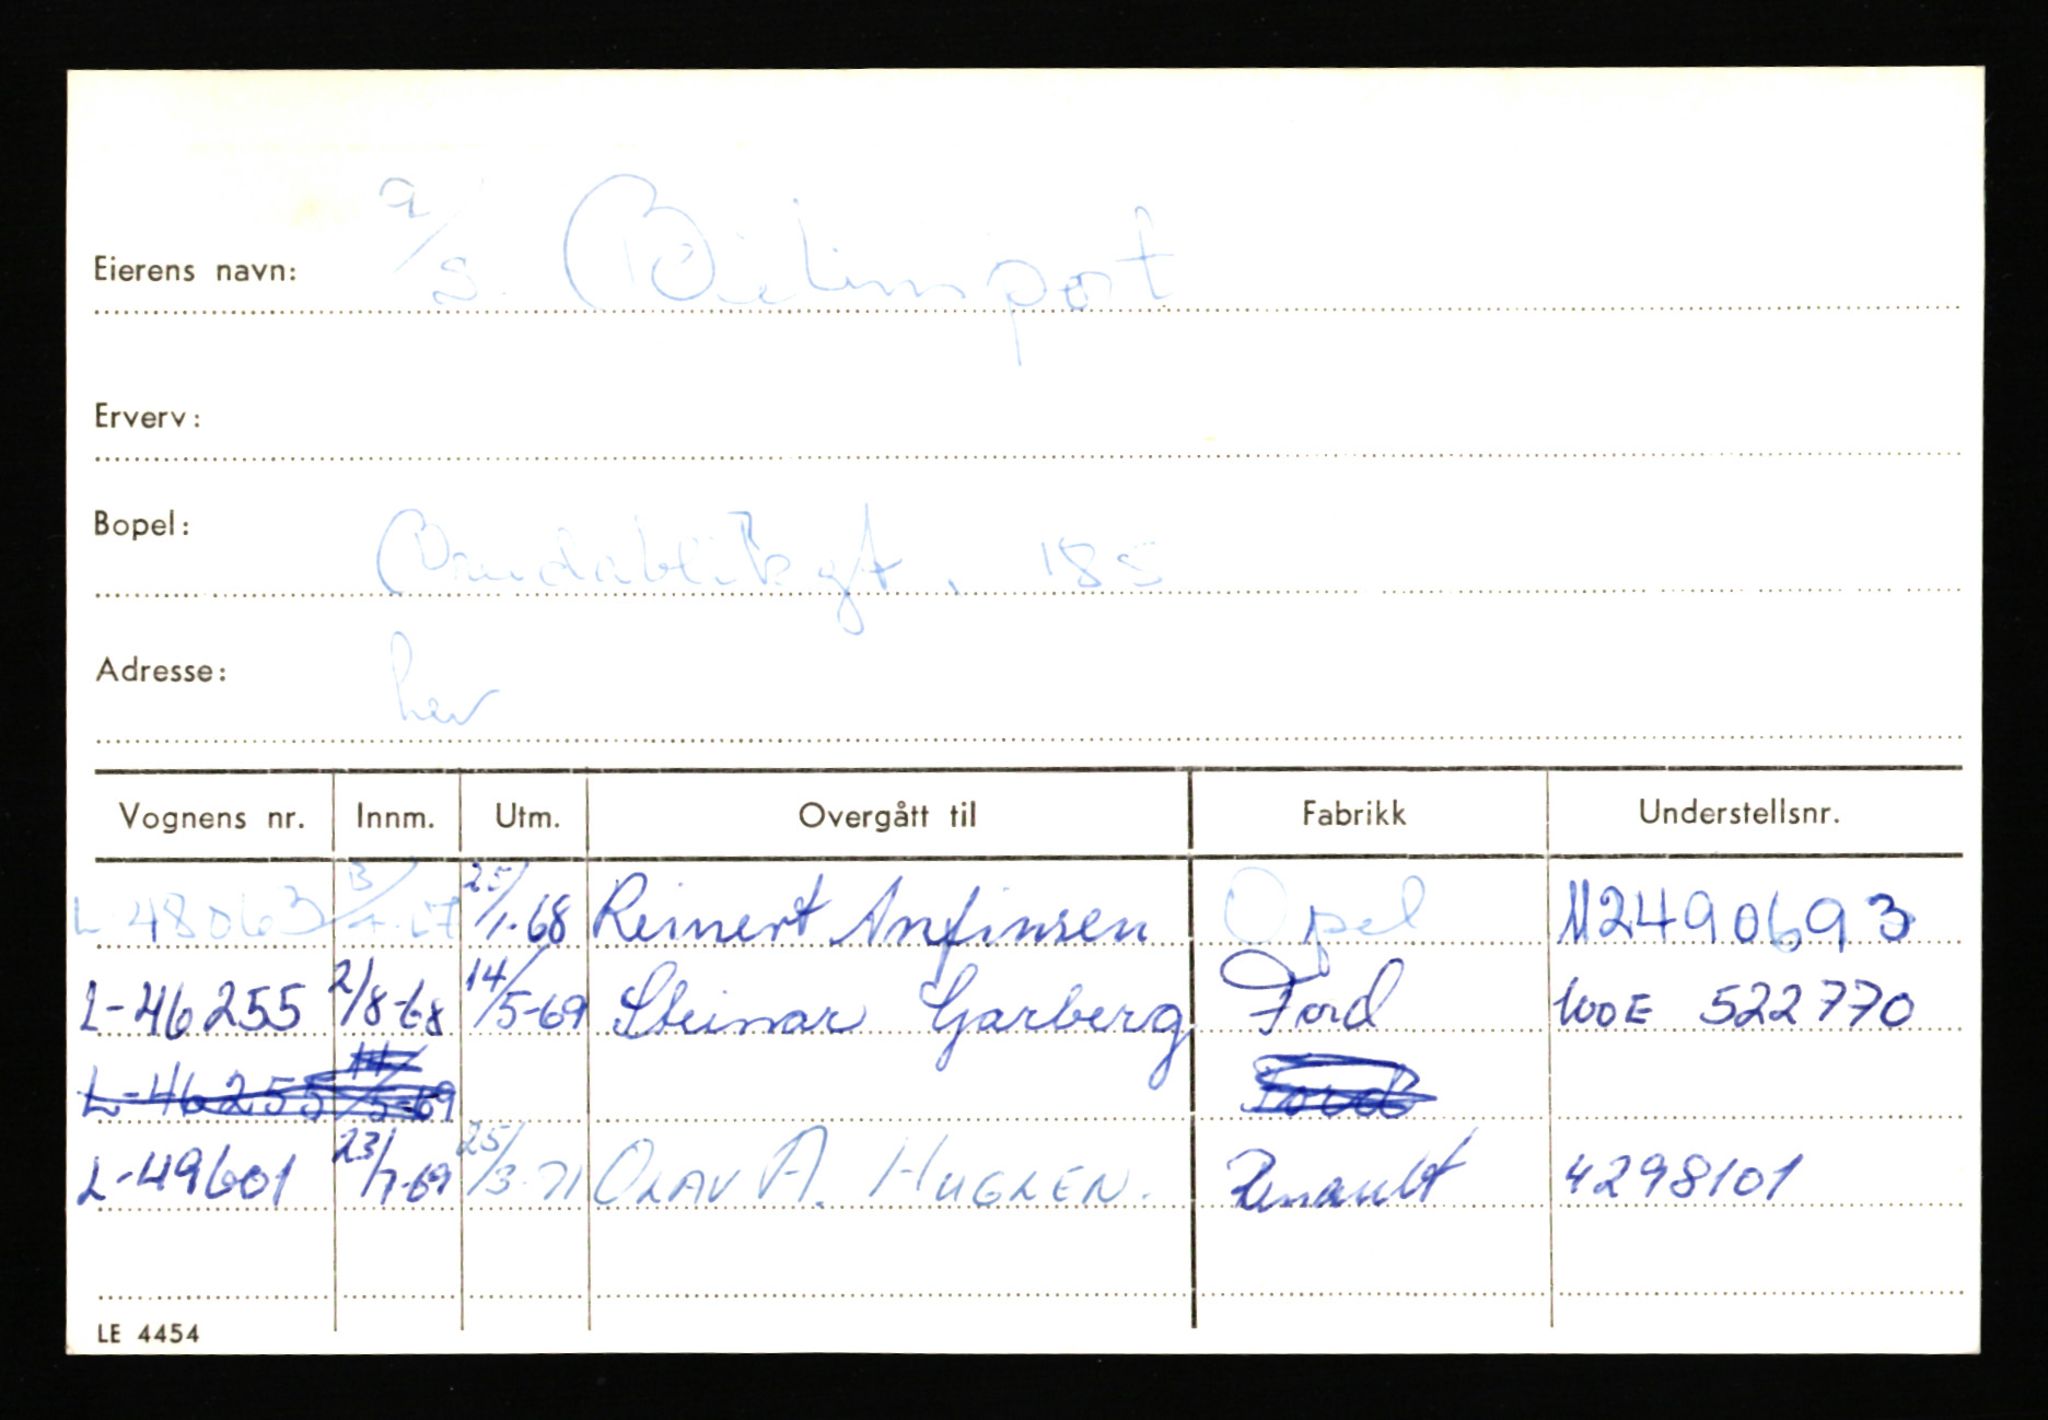 Eierens navn: a/s. Bilimport
Erverv:
Bopel: 185
Adresse: her
Vognens nr. Innm. Utm. Overgått til Fabrikk Understellsnr.
L-48063 25/1-68 Reinert Anfinsen Opel 112490693
L-46255 2/8-68 14/5-69 Steinar Garberg Ford WOE 522770
L-46255 14/5-69 Ford
L-49601 23/7-69 25/3-71 OLAV A. HUGLEN. Renault 4298101
LE 4454